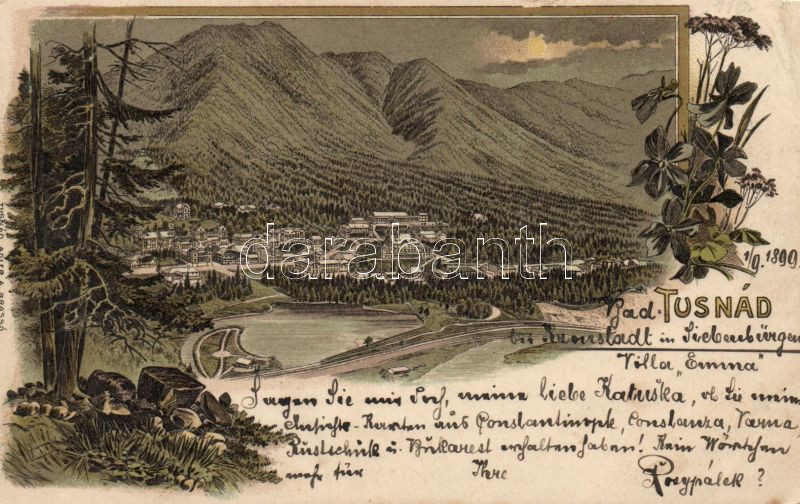 1/9. 1899.
Bad-TUSNÁD
bei Kronstadt in Siebenbürgen
Villa "Emma"
Sagen Sie mir doch, meine liebe Katuška, ob Sie meine
Ansichts-Karten aus Constantinople, Constanza, Varna,
Rustschuk u. Bukarest erhalten haben! Kein Wörtchen
mehr für Ihre Pospálek?
darabanth.com